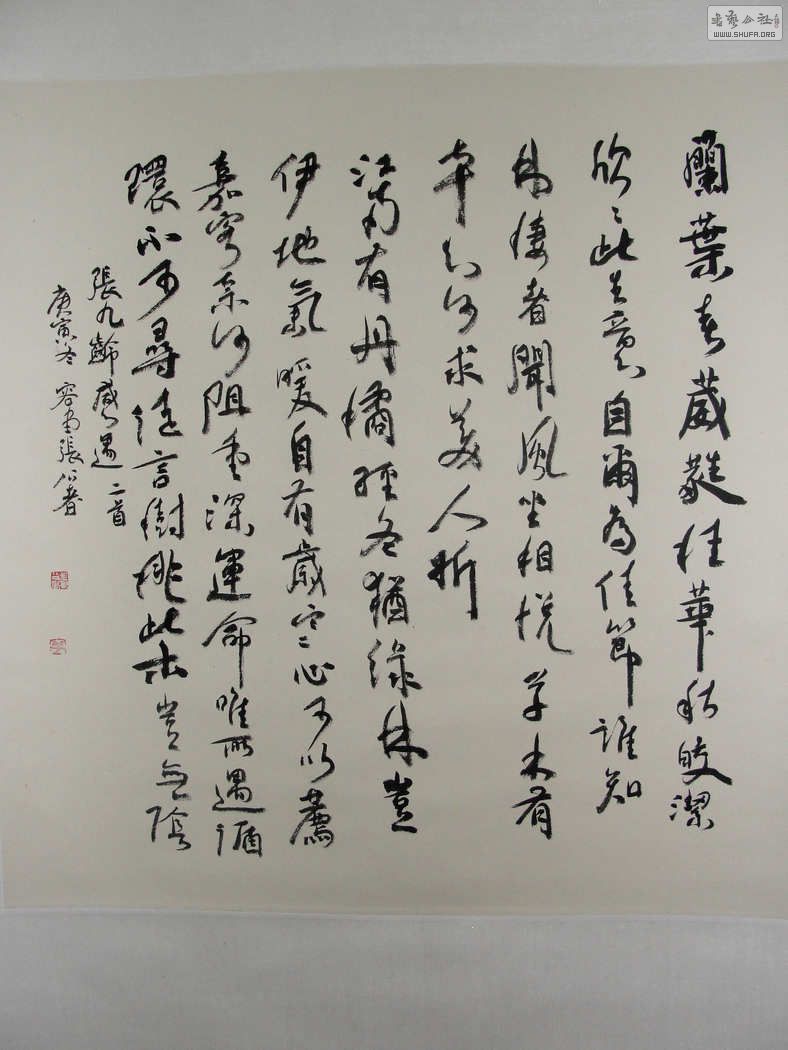 蘭葉春葳蕤桂華秋皎潔
欣〻此生意自爾為佳節誰知
林棲者聞風坐相悅草木有
本心何求美人折
江南有丹橘經冬猶綠林豈
伊地氣暖自有歲寒心可以薦
嘉客奈何阻重深運命唯所遇循
環不可尋徒言樹桃此木豈無陰
張九齡感遇二首
庚寅冬 容堂張公者
書藝公社
WWW.SHUFA.ORG